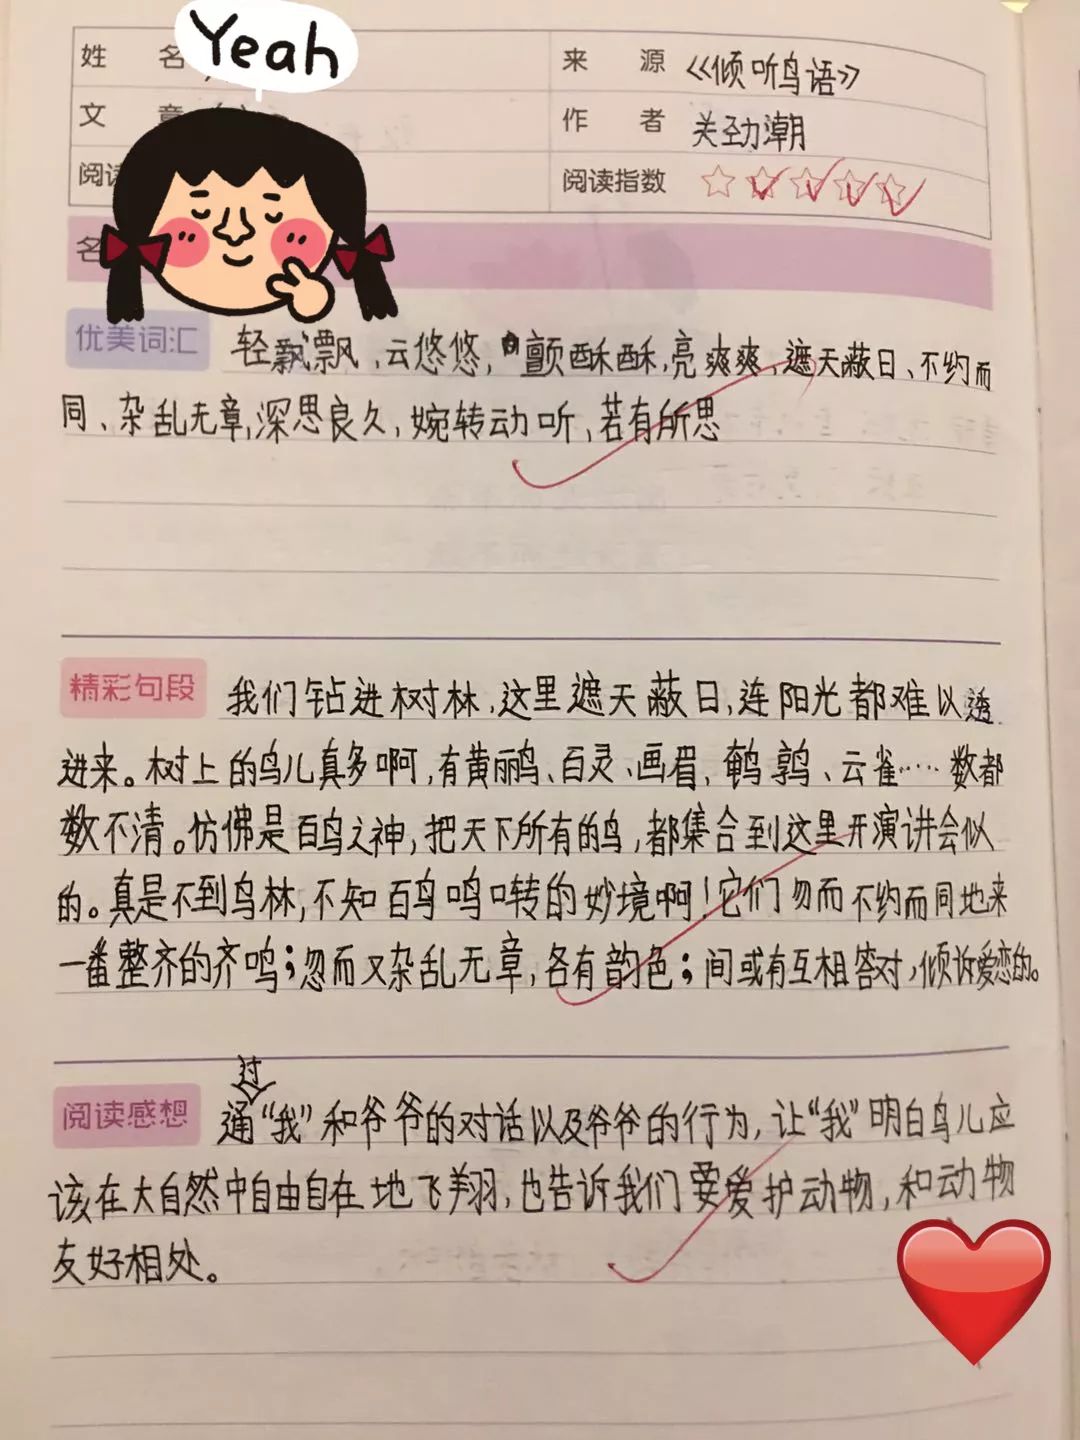 Yeah
姓 名
来 源 《倾听鸟语》
文 章
作 者 关劲潮
阅读
阅读指数 ☆☆☆☆☆
名
优美词汇 轻飘飘、云悠悠,颤酥酥,亮爽爽、遮天蔽日、不约而
同、杂乱无章,深思良久,婉转动听,若有所思
精彩句段 我们钻进树林,这里遮天蔽日,连阳光都难以透
进来。树上的鸟儿真多啊,有黄鹂、百灵、画眉,鹌鹑、云雀……数都
数不清。仿佛是百鸟之神,把天下所有的鸟,都集合到这里开演讲会似
的。真是不到鸟林,不知百鸟鸣啭的妙境啊!它们忽而不约而同地来
一番整齐的齐鸣;忽而又杂乱无章,各有韵色;间或有互相答对,倾诉爱恋的。
阅读感想 通过“我”和爷爷的对话以及爷爷的行为,让“我”明白鸟儿应
该在大自然中自由自在地飞翔,也告诉我们要爱护动物,和动物
友好相处。